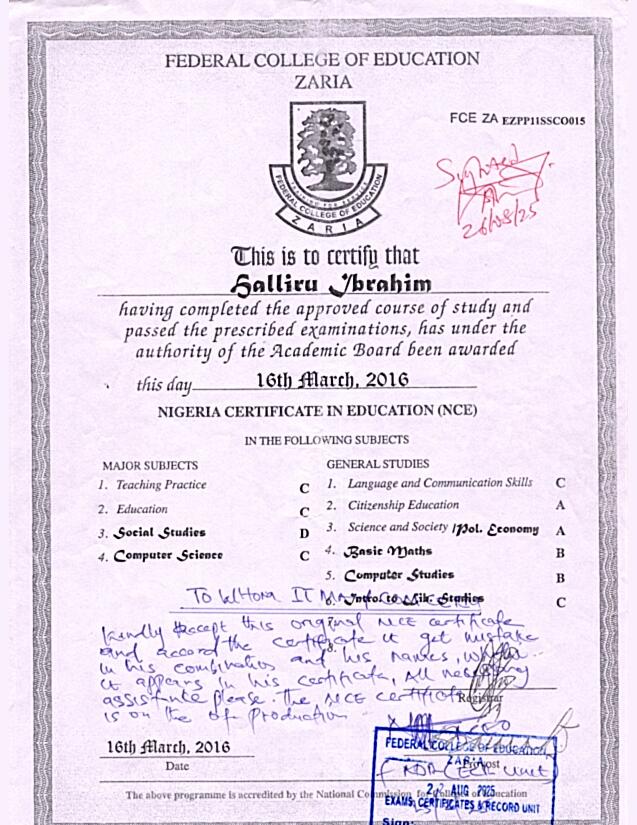 FEDERAL COLLEGE OF EDUCATION
ZARIA
FCE ZA EZPP11SSCO015
FEDERAL COLLEGE OF EDUCATION
ZARIA
26/08/25
This is to certify that
Salliru Ibrahim
having completed the approved course of study and
passed the prescribed examinations, has under the
authority of the Academic Board been awarded
this day 16th March, 2016
NIGERIA CERTIFICATE IN EDUCATION (NCE)
IN THE FOLLOWING SUBJECTS
MAJOR SUBJECTS
1. Teaching Practice C
2. Education C
3. Social Studies D
4. Computer Science C
GENERAL STUDIES
1. Language and Communication Skills C
2. Citizenship Education A
3. Science and Society /Pol. Economy A
4. Basic Maths B
5. Computer Studies B
6. Intro. to Lib. Studies C
TO WHOM IT MAY CONCERN
Kindly accept this original NCE certificate
and accord the certificate it get mistake
in his combination and his names,
it appears in his certificate, All necessary
assistance please. The NCE certificate
is on the of production
Registrar
16th March, 2016
Date
Provost
FEDERAL COLLEGE OF EDUCATION
ZARIA
AUG 2025
EXAMS, CERTIFICATES & RECORD UNIT
Sign:
The above programme is accredited by the National Commission for Colleges of Education